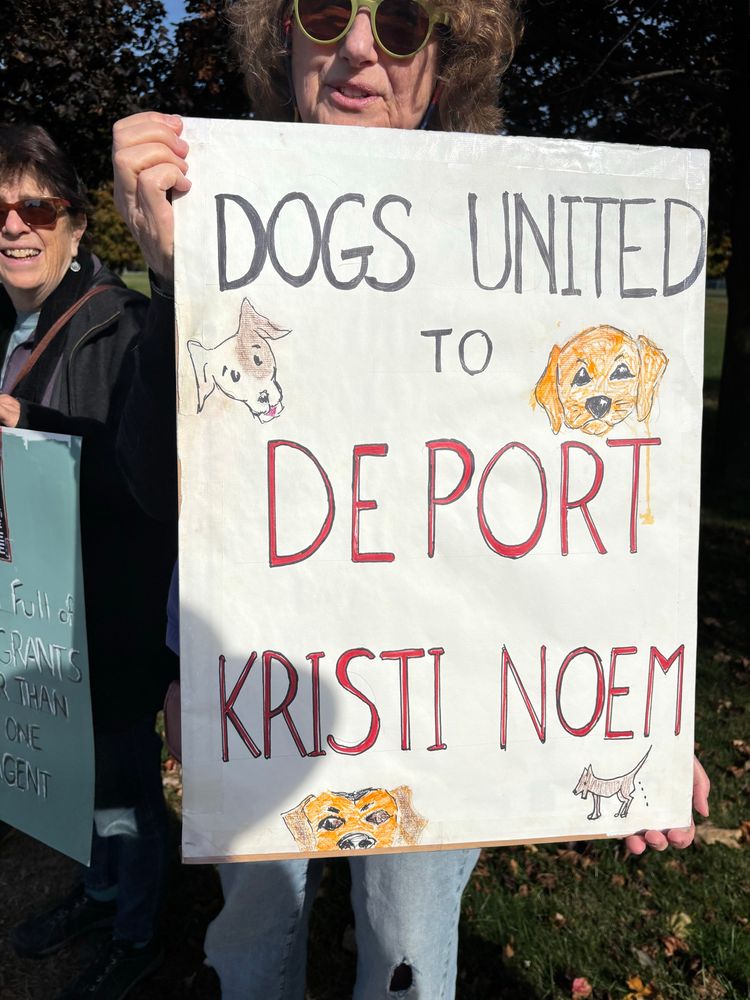 DOGS UNITED
TO
DEPORT
KRISTI NOEM
Full of
GRANTS
THAN
ONE
GENT